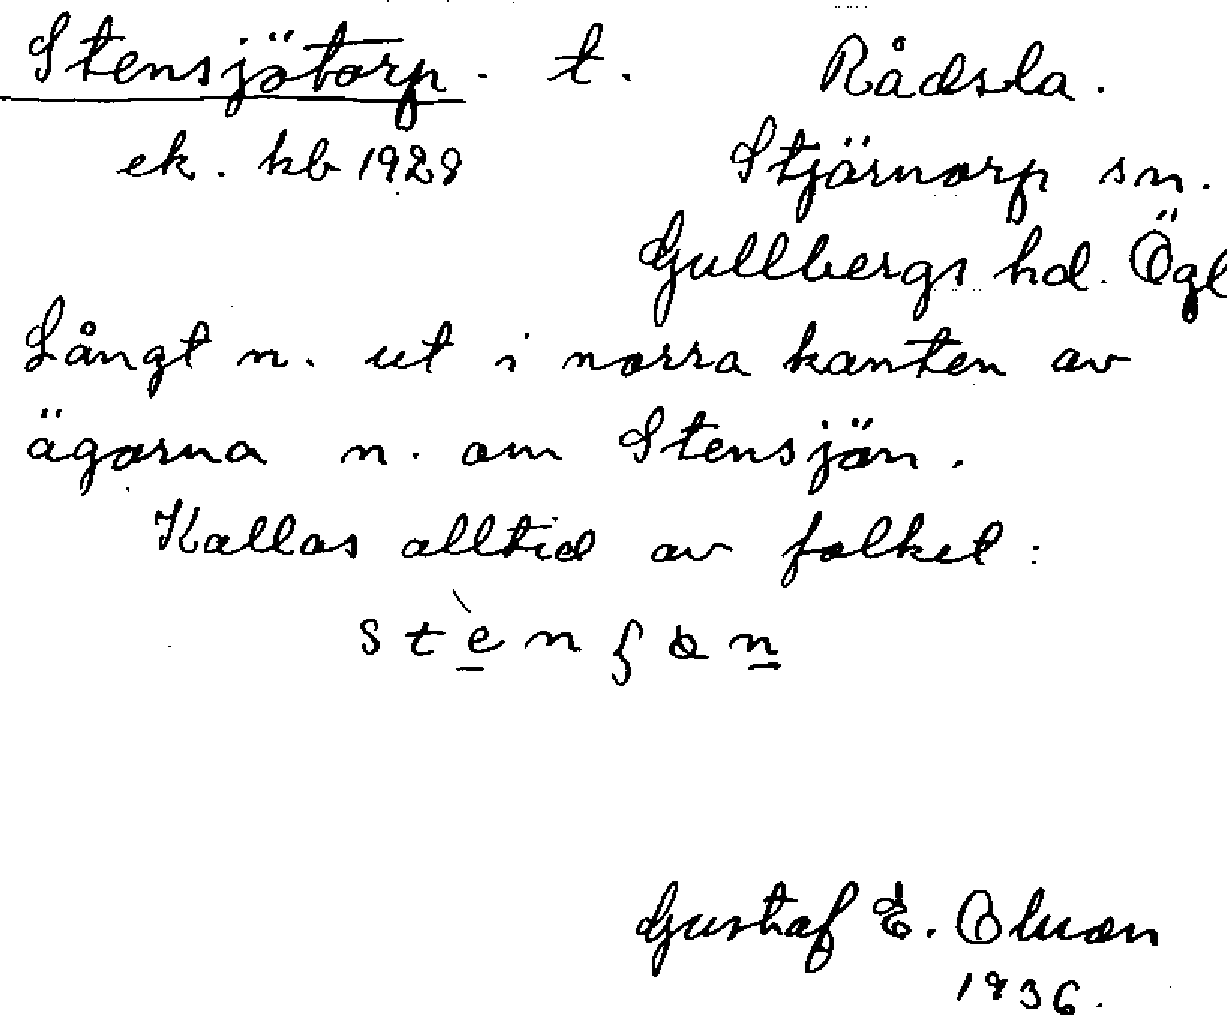 Stensjötorp. t. Rådsla.
ek. kb 1928 Stjärnorp sn.
Gullbergs hd. Ögl
Långt n. ut i norra kanten av
ägorna n. om Stensjön.
Kallas alltid av folket:
Gustaf E. Olsson
1936.